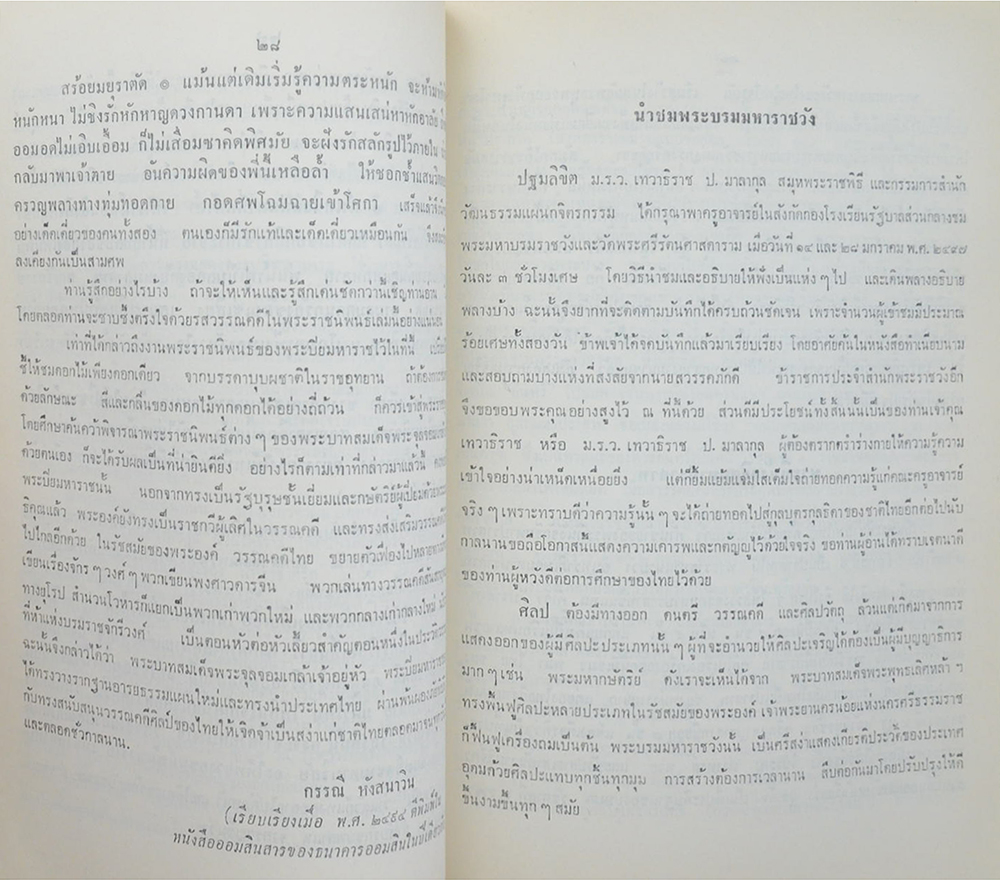 ๒๘
สร้อยมยุราตัด ๏ แม้นแต่เดิมเริ่มรู้ความตระหนัก จะห้าม
หนักหนา ไม่ชิงรักหักหาญดวงกานดา เพราะความแสนเสน่หาหักอาลัย
ออมอดไม่เอิบเอื้อม ก็ไม่เสื่อมซาคิดพิศมัย จะฝังรักสลักรูปไว้ภายใน
กลับมาพาเจ้าตาย อันความผิดของพี่นี้เหลือล้ำ ให้ชอกช้ำแสน
ครวญพลางทางทุ่มทอดกาย กอดศพโฉมฉายเข้าโศกา เสร็จแล้ว
อย่างเด็ดเดี่ยวของคนทั้งสอง ตนเองก็มีรักแท้และเด็ดเดี่ยวเหมือนกัน จึง
ลงเคียงกันเป็นสามศพ
ท่านรู้สึกอย่างไรบ้าง ถ้าจะให้เห็นและรู้สึกเด่นชัดกว่านี้เชิญท่านอ่าน
โดยตลอดท่านจะซาบซึ้งตรึงใจด้วยรสวรรณคดีในพระราชนิพนธ์เล่มนี้อย่างแน่นอน
เท่าที่ได้กล่าวถึงงานพระราชนิพนธ์ของพระปิยมหาราชไว้ในที่นี้
ชี้ให้ชมดอกไม้เพียงดอกเดียว จากบรรดาบุบผชาติในราชอุทยาน ถ้าต้องการ
ด้วยลักษณะ สีและกลิ่นของดอกไม้ทุกดอกได้อย่างถี่ถ้วน ก็ควรเข้าสู่
โดยศึกษาค้นคว้าพิจารณาพระราชนิพนธ์ต่าง ๆ ของพระบาทสมเด็จพระจุลจอมเกล้า
ด้วยตนเอง ก็จะได้รับผลเป็นที่น่ายินดียิ่ง อย่างไรก็ตามเท่าที่กล่าวมาแล้วนี้
พระปิยมหาราชนั้น นอกจากทรงเป็นรัฐบุรุษชั้นเยี่ยมและกษัตริย์ผู้เปี่ยมด้วย
ธิคุณแล้ว พระองค์ยังทรงเป็นราชกวีผู้เลิศในวรรณคดี และทรงส่งเสริมวรรณคดี
ไปไกลอีกด้วย ในรัชสมัยของพระองค์ วรรณคดีไทย ขยายตัวเฟื่องไปหลาย
เขียนเรื่องจักร ๆ วงศ์ ๆ พวกเขียนพงศาวดารจีน พวกเล่นทางวรรณคดี
ทางยุโรป สำนวนโวหารก็แยกเป็นพวกเก่าพวกใหม่ และพวกกลางเก่ากลางใหม่
ที่ห้าแห่งบรมราชจักรีวงศ์ เป็นตอนหัวต่อหัวเลี้ยวสำคัญตอนหนึ่งใน
ฉะนั้นจึงกล่าวได้ว่า พระบาทสมเด็จพระจุลจอมเกล้าเจ้าอยู่หัว พระปิยมหาราช
ได้ทรงวางรากฐานอารยธรรมแผนใหม่และทรงนำประเทศไทย ผ่านพ้น
กับทรงสนับสนุนวรรณคดีศิลป์ของไทยให้เจิดจ้าเป็นสง่าแก่ชาติไทยตลอดมา
และตลอดชั่วกาลนาน.
กรรณี หังสนาวิน
(เรียบเรียงเมื่อ พ.ศ. ๒๔๙๔ ตีพิมพ์ใน
หนังสือออมสินสารของธนาคารออมสินในปีเดียวกัน
นำชมพระบรมมหาราชวัง
ปฐมลิขิต ม.ร.ว. เทวาธิราช ป. มาลากุล สมุหพระราชพิธี และกรรมการสำนัก
วัฒนธรรมแผนกจิตรกรรม ได้กรุณาพาครูอาจารย์ในสังกัดกองโรงเรียนรัฐบาลส่วนกลางชม
พระมหาบรมราชวังและวัดพระศรีรัตนศาสดาราม เมื่อวันที่ ๑๔ และ ๒๘ มกราคม พ.ศ. ๒๔๙๗
วันละ ๓ ชั่วโมงเศษ โดยวิธีนำชมและอธิบายให้ฟังเป็นแห่ง ๆ ไป และเดินพลางอธิบาย
พลางบ้าง ฉะนั้นจึงยากที่จะติดตามบันทึกได้ครบถ้วนชัดเจน เพราะจำนวนผู้เข้าชมมีประมาณ
ร้อยเศษทั้งสองวัน ข้าพเจ้าได้จดบันทึกแล้วมาเรียบเรียง โดยอาศัยค้นในหนังสือทำเนียบนาม
และสอบถามบางแห่งที่สงสัยจากนายสวรรค์ภักดี ข้าราชการประจำสำนักพระราชวังอีก
จึงขอขอบพระคุณอย่างสูงไว้ ณ ที่นี้ด้วย ส่วนดีมีประโยชน์ทั้งสิ้นนั้นเป็นของท่านเจ้าคุณ
เทวาธิราช หรือ ม.ร.ว. เทวาธิราช ป. มาลากุล ผู้ต้องตรากตรำร่างกายให้ความรู้ความ
เข้าใจอย่างน่าเหน็ดเหนื่อยยิ่ง แต่ก็ยิ้มแย้มแจ่มใสเต็มใจถ่ายทอดความรู้แก่คณะครูอาจารย์
จริง ๆ เพราะทราบดีว่าความรู้นั้น ๆ จะได้ถ่ายทอดไปสู่กุลบุตรกุลธิดาของชาติไทยอีกต่อไปนับ
กาลนาน ขอถือโอกาสนี้แสดงความเคารพและกตัญญูไว้ด้วยใจจริง ขอท่านผู้อ่านได้ทราบเจตนาดี
ของท่านผู้หวังดีต่อการศึกษาของไทยไว้ด้วย
ศิลป ต้องมีทางออก ดนตรี วรรณคดี และศิลปวัตถุ ล้วนแต่เกิดมาจากการ
แสดงออกของผู้มีศิลปะประเภทนั้น ๆ ผู้ที่จะอำนวยให้ศิลปะเจริญได้ต้องเป็นผู้มีบุญญาธิการ
มาก ๆ เช่น พระมหากษัตริย์ ดังเราจะเห็นได้จาก พระบาทสมเด็จพระพุทธเลิศหล้า ฯ
ทรงฟื้นฟูศิลปะหลายประเภทในรัชสมัยของพระองค์ เจ้าพระยานครน้อยแห่งนครศรีธรรมราช
ก็ฟื้นฟูเครื่องถมเป็นต้น พระบรมมหาราชวังนั้น เป็นศรีสง่าแสดงเกียรติประวัติของประเทศ
อุดมด้วยศิลปะแทบทุกชิ้นทุกมุม การสร้างต้องการเวลานาน สืบต่อกันมาโดยปรับปรุงให้ดี
ขึ้นงามขึ้นทุก ๆ สมัย